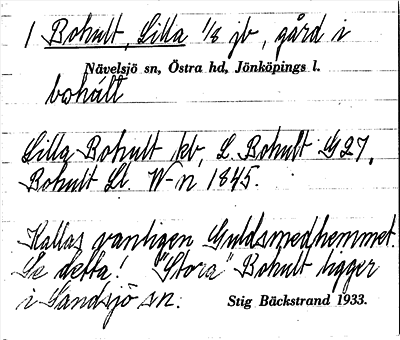 1 Bohult, Lilla 1/8 jb, gård i
Nävelsjö sn, Östra hd, Jönköpings l.
bohált
Lilla Bohult kb, L. Bohult G 27,
Bohult Ll. W-n 1845.
Kallas vanligen Guldsmedhemmet.
Se detta! "Stora" Bohult ligger
i Sandsjö sn.
Stig Bäckstrand 1933.